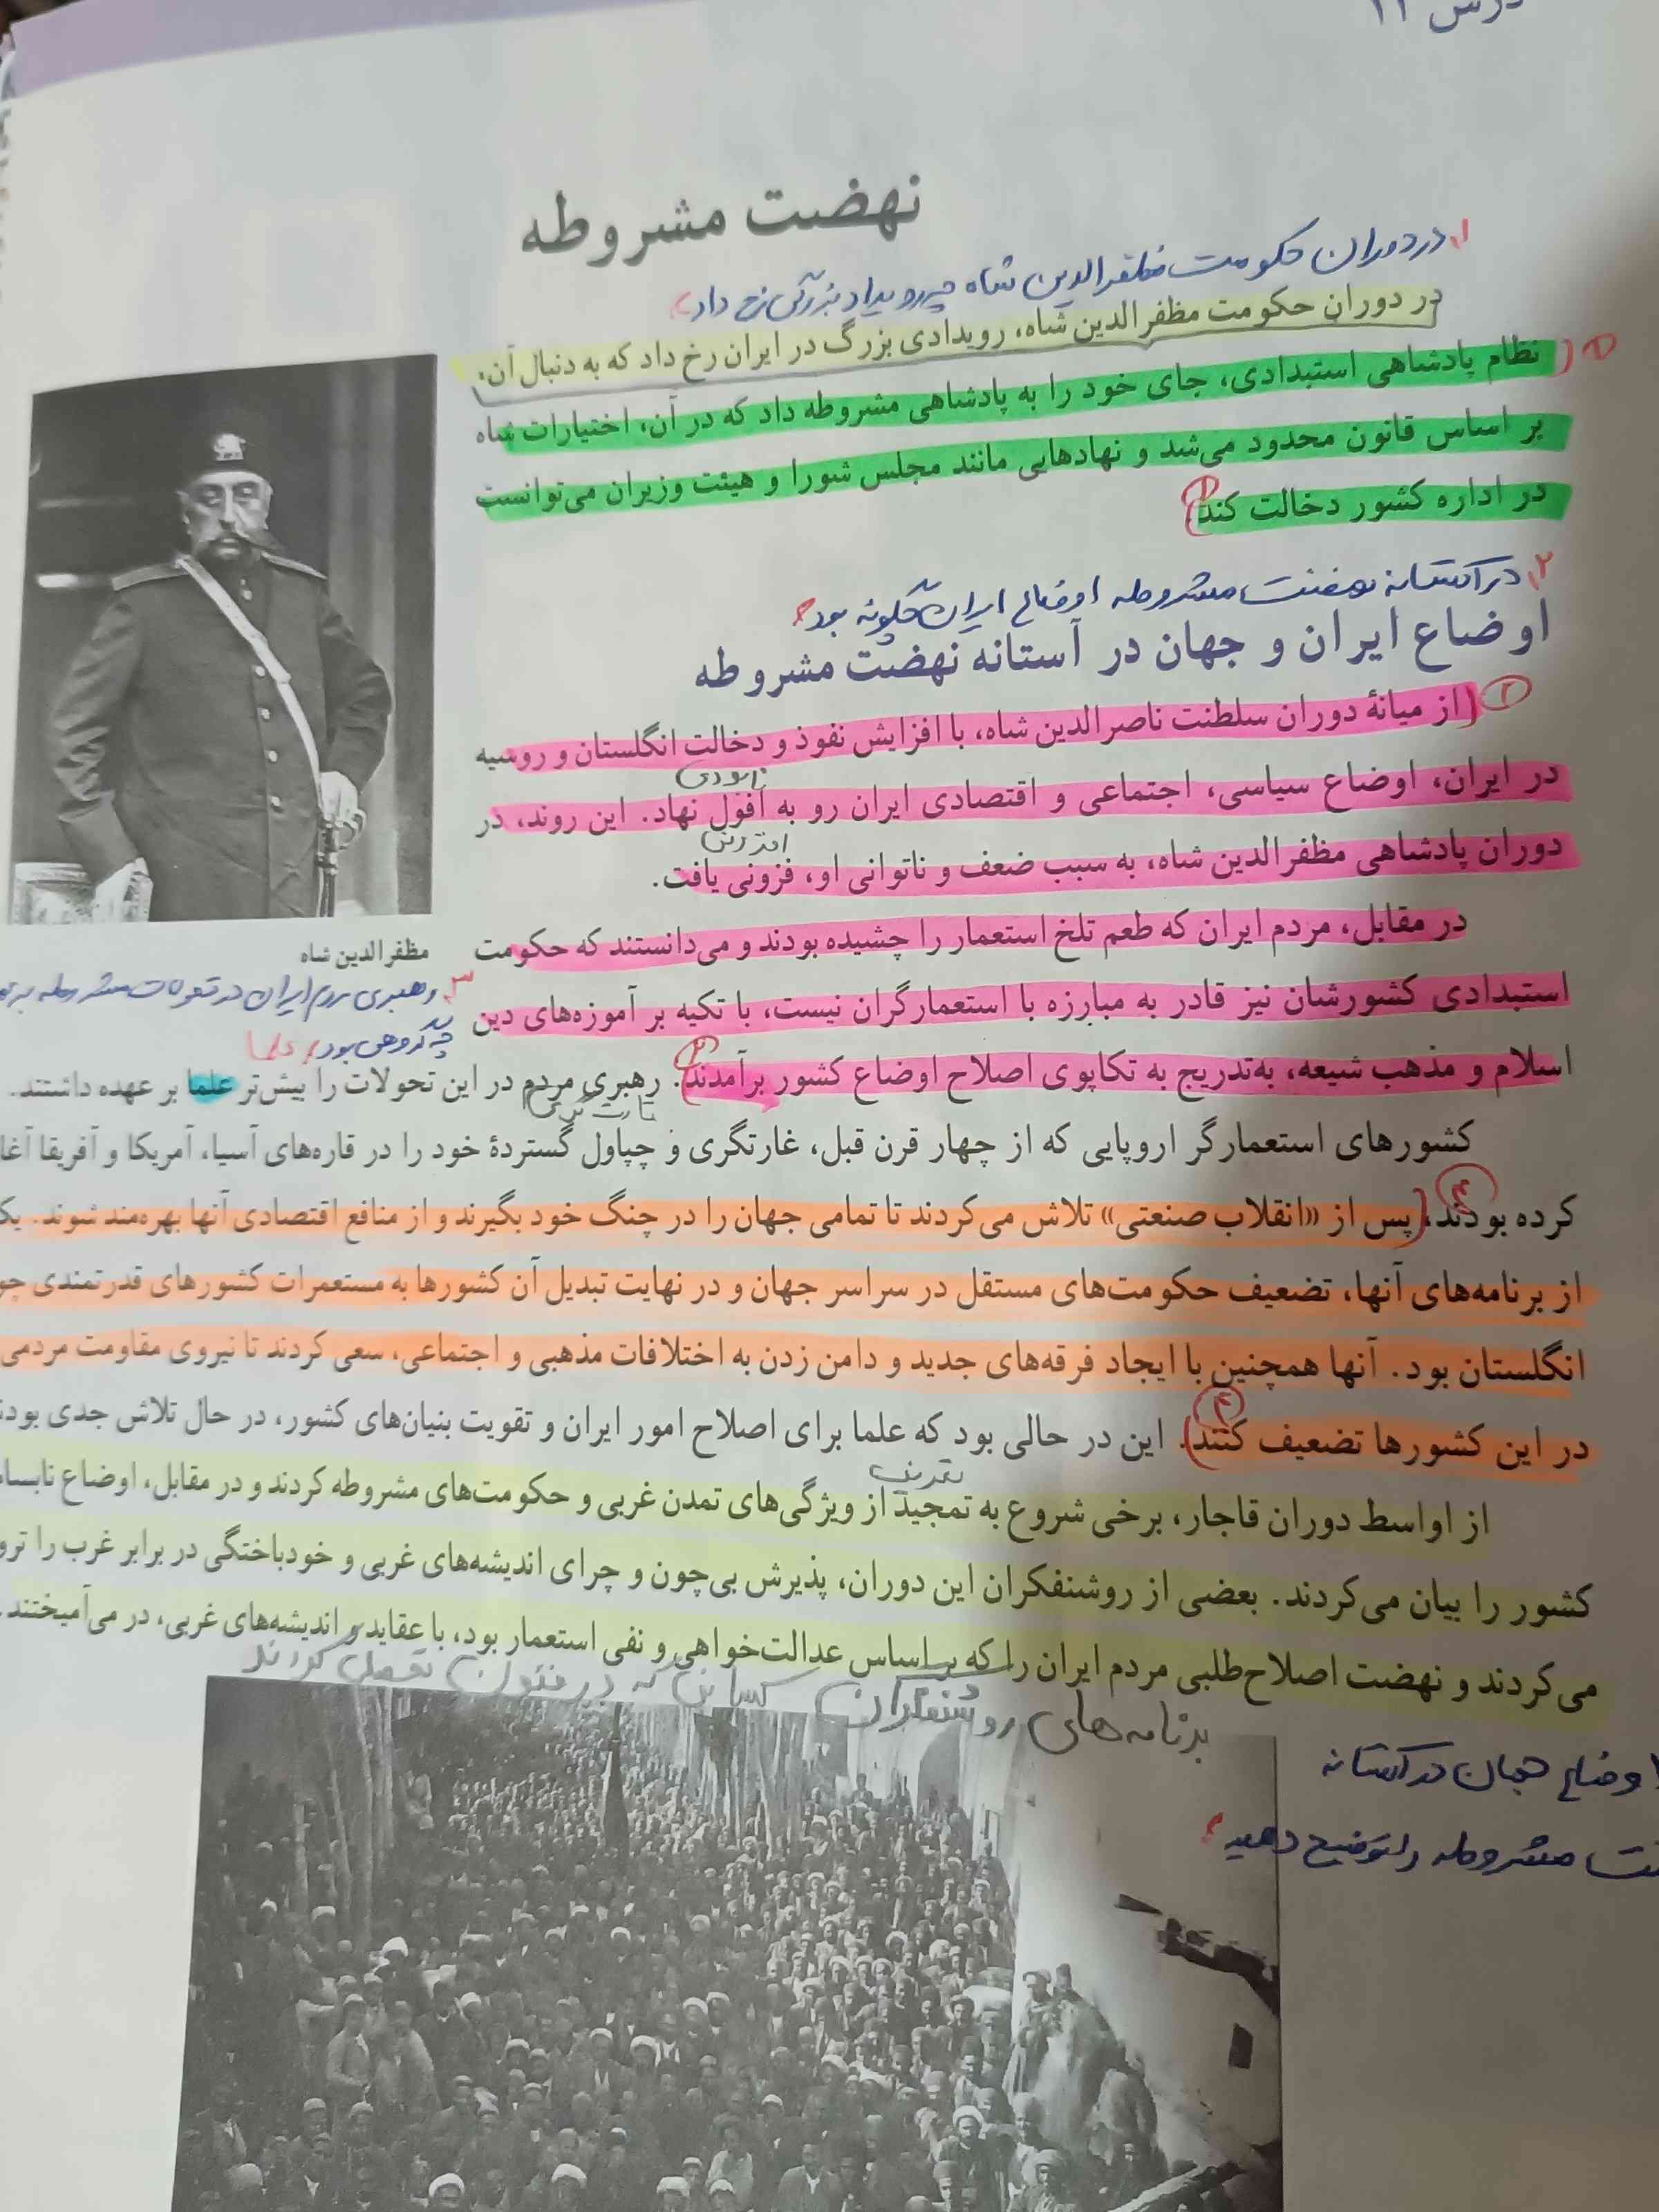 درس ۱۱
نهضت مشروطه
۱. در دوران حکومت مظفرالدین شاه چه رویداد بزرگی رخ داد؟
در دوران حکومت مظفرالدین شاه، رویدادی بزرگ در ایران رخ داد که به دنبال آن،
۱ (نظام پادشاهی استبدادی، جای خود را به پادشاهی مشروطه داد که در آن، اختیارات شاه
بر اساس قانون محدود می‌شد و نهادهایی مانند مجلس شورا و هیئت وزیران می‌توانست
در اداره کشور دخالت کند) ۱
۲. در آستانه نهضت مشروطه اوضاع ایران چگونه بود؟
اوضاع ایران و جهان در آستانه نهضت مشروطه
۲ (از میانهٔ دوران سلطنت ناصرالدین شاه، با افزایش نفوذ و دخالت انگلستان و روسیه
نابودی
در ایران، اوضاع سیاسی، اجتماعی و اقتصادی ایران رو به افول نهاد. این روند، در
افزایش
دوران پادشاهی مظفرالدین شاه، به سبب ضعف و ناتوانی او، فزونی یافت.
در مقابل، مردم ایران که طعم تلخ استعمار را چشیده بودند و می‌دانستند که حکومت
استبدادی کشورشان نیز قادر به مبارزه با استعمارگران نیست، با تکیه بر آموزه‌های دین
اسلام و مذهب شیعه، به‌تدریج به تکاپوی اصلاح اوضاع کشور برآمدند) ۲. رهبری مردم در این تحولات را بیش‌تر علما بر عهده داشتند.
مظفرالدین شاه
۳. رهبری مردم ایران در تحولات مشروطه بر
چه گروهی بود؟ علما
غارت کردن
کشورهای استعمارگر اروپایی که از چهار قرن قبل، غارتگری و چپاول گستردهٔ خود را در قاره‌های آسیا، آمریکا و آفریقا
کرده بودند، ۴ (پس از «انقلاب صنعتی» تلاش می‌کردند تا تمامی جهان را در چنگ خود بگیرند و از منافع اقتصادی آنها بهره‌مند شوند.
از برنامه‌های آنها، تضعیف حکومت‌های مستقل در سراسر جهان و در نهایت تبدیل آن کشورها به مستعمرات کشورهای قدرتمندی
انگلستان بود. آنها همچنین با ایجاد فرقه‌های جدید و دامن زدن به اختلافات مذهبی و اجتماعی، سعی کردند تا نیروی مقاومت مردمی
در این کشورها تضعیف کنند) ۴. این در حالی بود که علما برای اصلاح امور ایران و تقویت بنیان‌های کشور، در حال تلاش جدی
تعریف
از اواسط دوران قاجار، برخی شروع به تمجید از ویژگی‌های تمدن غربی و حکومت‌های مشروطه کردند و در مقابل، اوضاع
کشور را بیان می‌کردند. بعضی از روشنفکران این دوران، پذیرش بی‌چون و چرای اندیشه‌های غربی و خودباختگی در برابر غرب را
می‌کردند و نهضت اصلاح‌طلبی مردم ایران را که بر اساس عدالت‌خواهی و نفی استعمار بود، با عقاید و اندیشه‌های غربی، در می‌آمیختند.
برنامه‌های روشنفکران کسانی که در
اوضاع جهان در آستانه
مشروطه را توضیح دهید؟